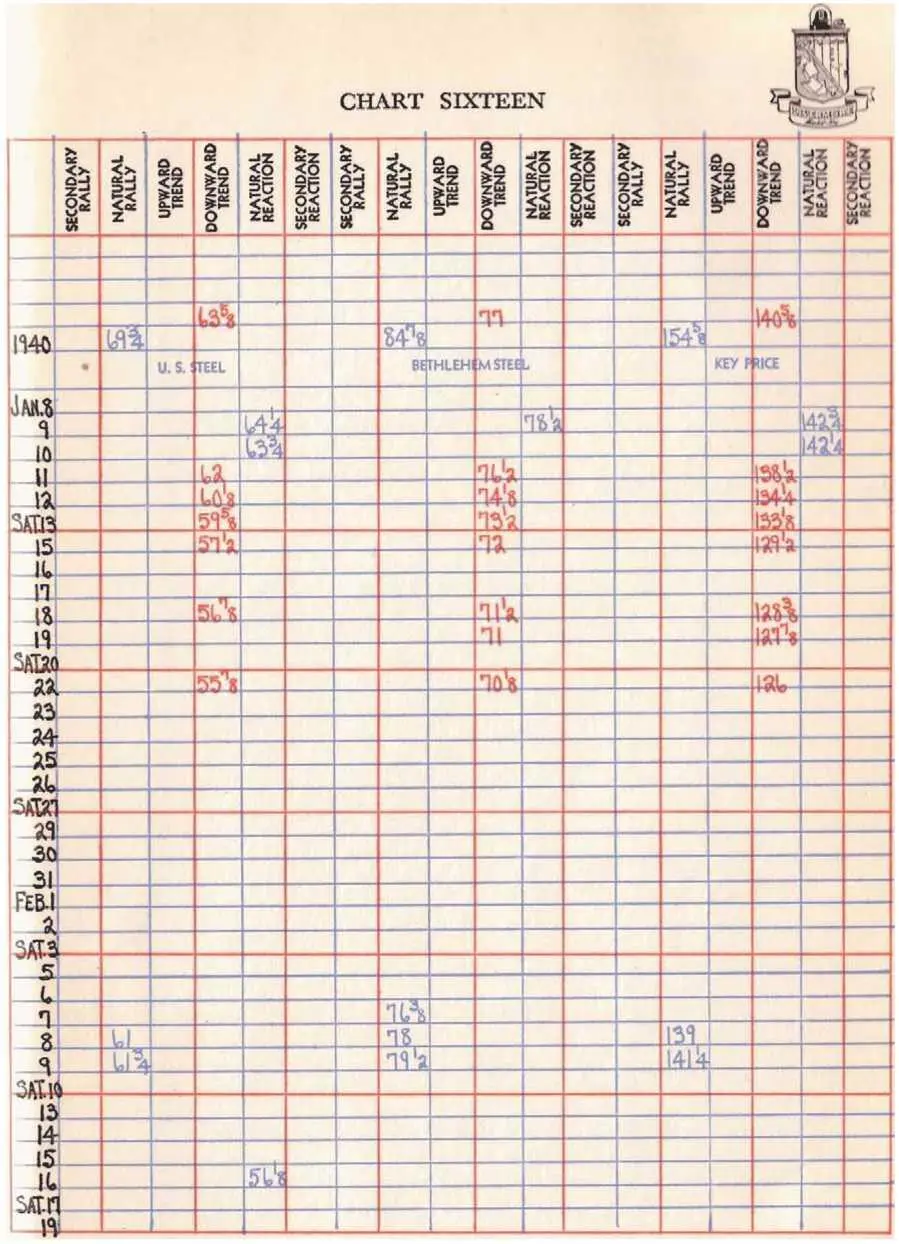 CHART SIXTEEN
LIVERMORE
SECONDARY RALLY NATURAL RALLY UPWARD TREND DOWNWARD TREND NATURAL REACTION SECONDARY REACTION SECONDARY RALLY NATURAL RALLY UPWARD TREND DOWNWARD TREND NATURAL REACTION SECONDARY REACTION SECONDARY RALLY NATURAL RALLY UPWARD TREND DOWNWARD TREND NATURAL REACTION SECONDARY REACTION
63 5/8 77 140 5/8
1940 69 3/4 84 7/8 154 5/8
U. S. STEEL BETHLEHEM STEEL KEY PRICE
JAN. 8
9 64 1/4 78 1/2 142 3/4
10 63 3/4 142 1/4
11 62 76 1/2 138 1/2
12 60 1/8 74 1/8 134 1/4
SAT.13 59 5/8 73 1/2 133 1/8
15 57 1/2 72 129 1/2
16
17
18 56 7/8 71 1/2 128 3/8
19 71 127 7/8
SAT.20
22 55 7/8 70 1/8 126
23
24
25
26
SAT.27
29
30
31
FEB.1
2
SAT.3
5
6
7 76 3/8
8 61 78 139
9 61 3/4 79 1/2 141 1/4
SAT.10
13
14
15
16 56 1/8
SAT.17
19